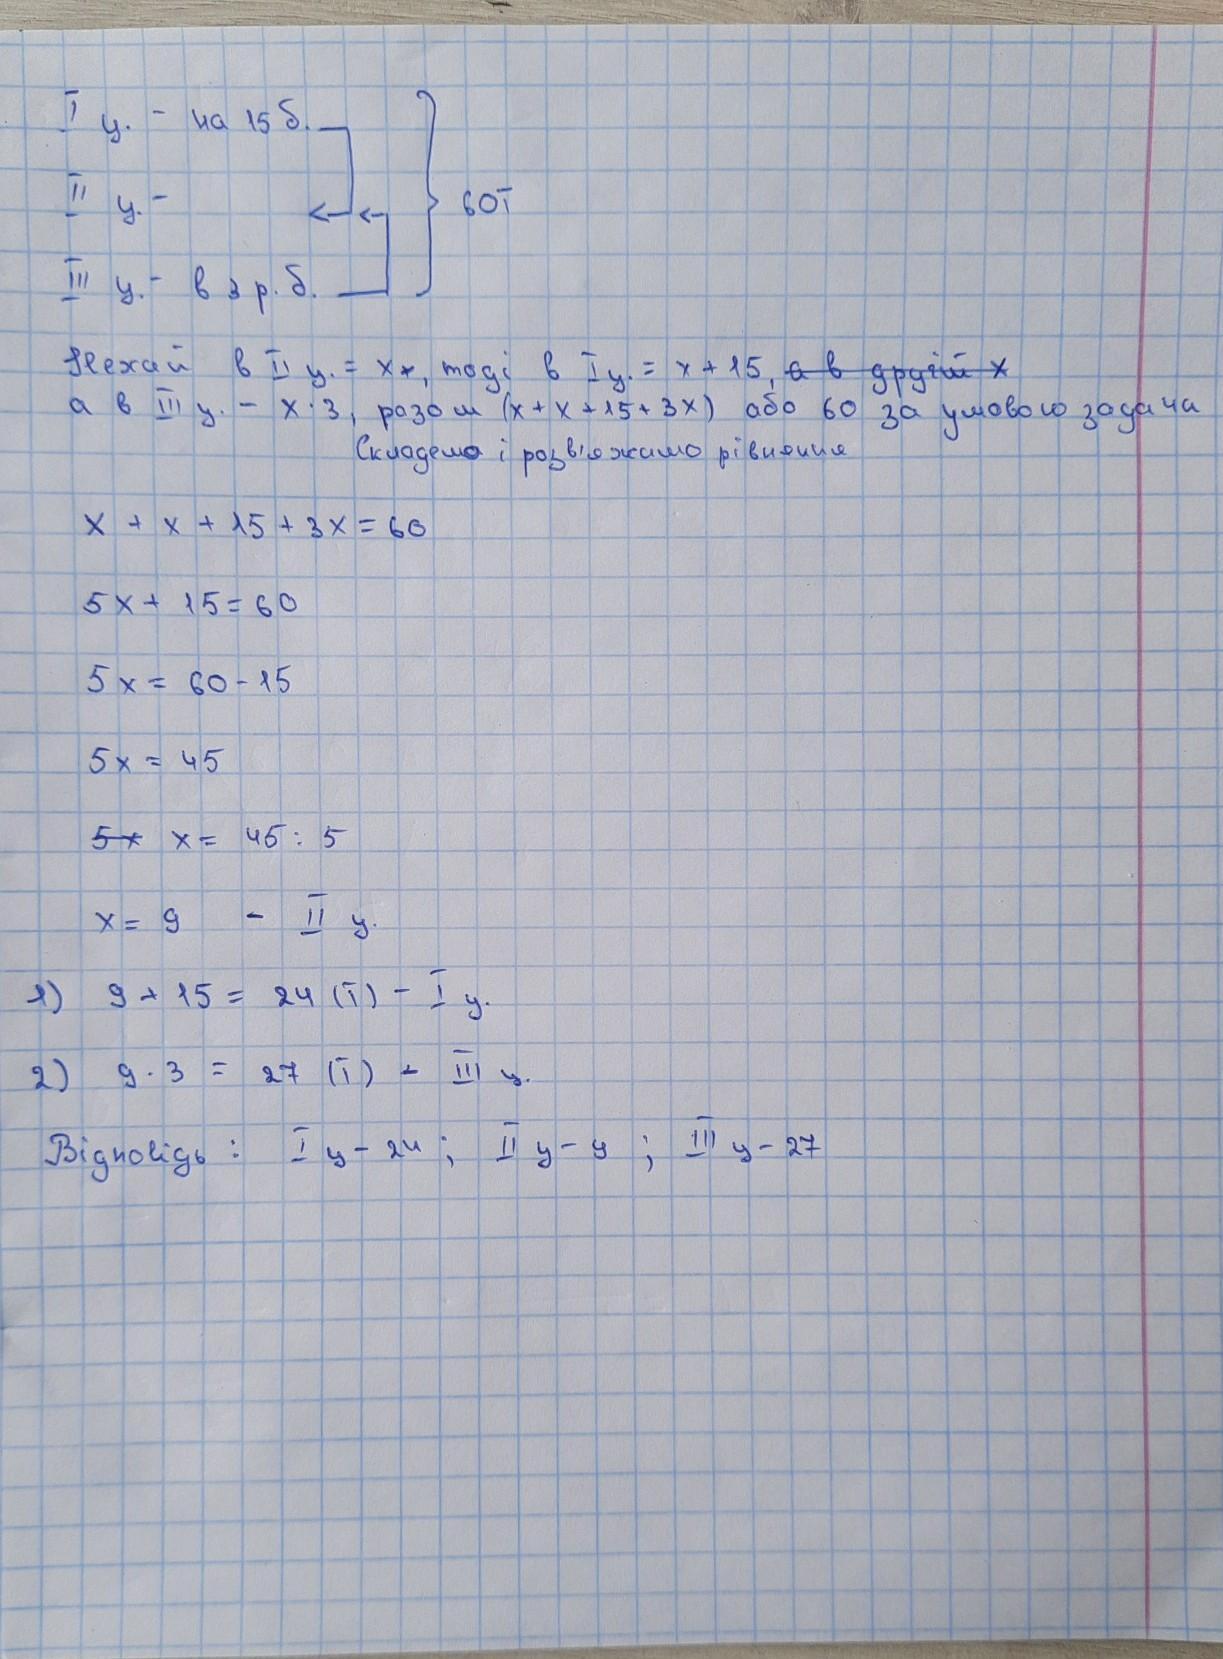 I ц. - на 15 б.
II ц. -
60т
III ц. - в 3 р. б.
Нехай в II ц. = x, тоді в I ц. = x + 15, а в другій x
а в III ц. - x · 3, разом (x + x + 15 + 3x) або 60 за умовою задача
Складемо і розв'яжимо рівняння
x + x + 15 + 3x = 60
5x + 15 = 60
5x = 60 - 15
5x = 45
5x x = 45 : 5
x = 9 - II ц.
1) 9 + 15 = 24 (т) - I ц.
2) 9 · 3 = 27 (т) - III ц.
Відповідь : I ц - 24 ; II ц - 9 ; III ц - 27